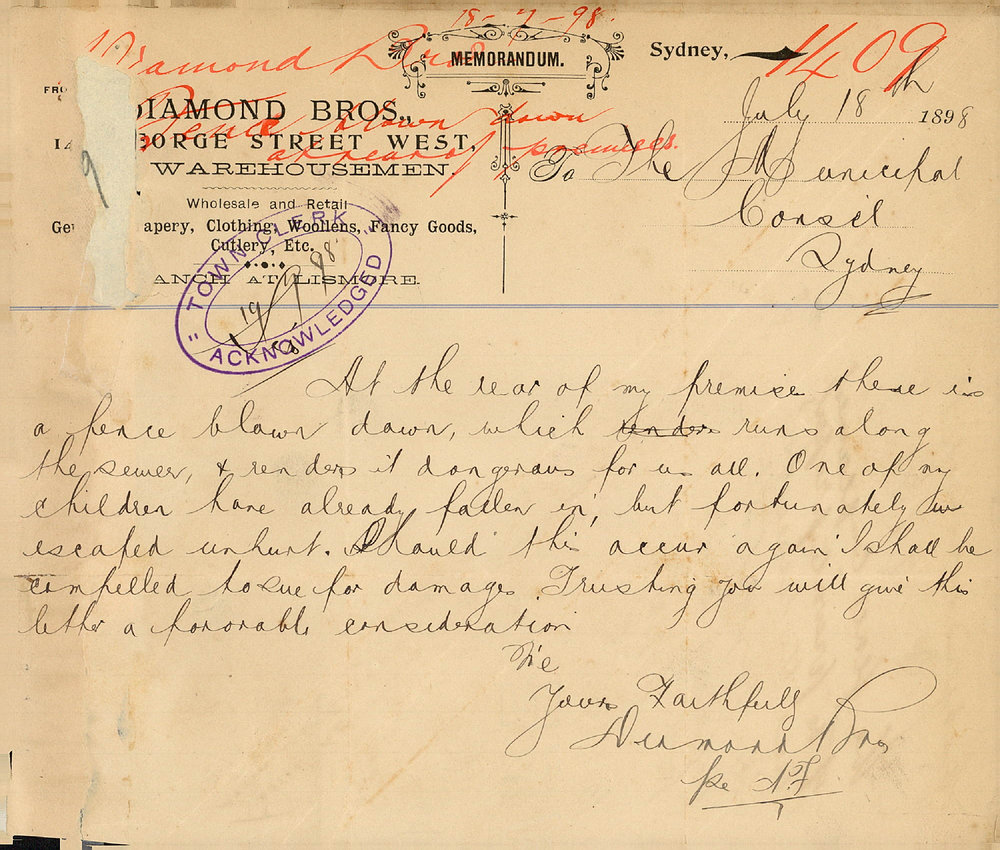 18-7-98
Diamond Bros
1409
MEMORANDUM.
Sydney,
July 18th 1898
FRO
DIAMOND BROS.,
14 EORGE STREET WEST,
WAREHOUSEMEN.
Fence blown down
at rear of premises.
9
Wholesale and Retail
Ge apery, Clothing, Woollens, Fancy Goods,
Cutlery, Etc.
ANCH AT LISMORE.
To The Municipal
Consil
Sydney
"TOWN CLERK"
19 98
ACKNOWLEDGED
At the rear of my premise there is
a fence blown down, which renders runs along
the sewer, & renders it dangerous for us all. One of my
children have already fallen in, but fortunately
escaped unhurt. Should this occur again I shall be
compelled to sue for damages. Trusting you will give this
letter a favorable consideration
We
Yours Faithfully
Diamond Bros
per